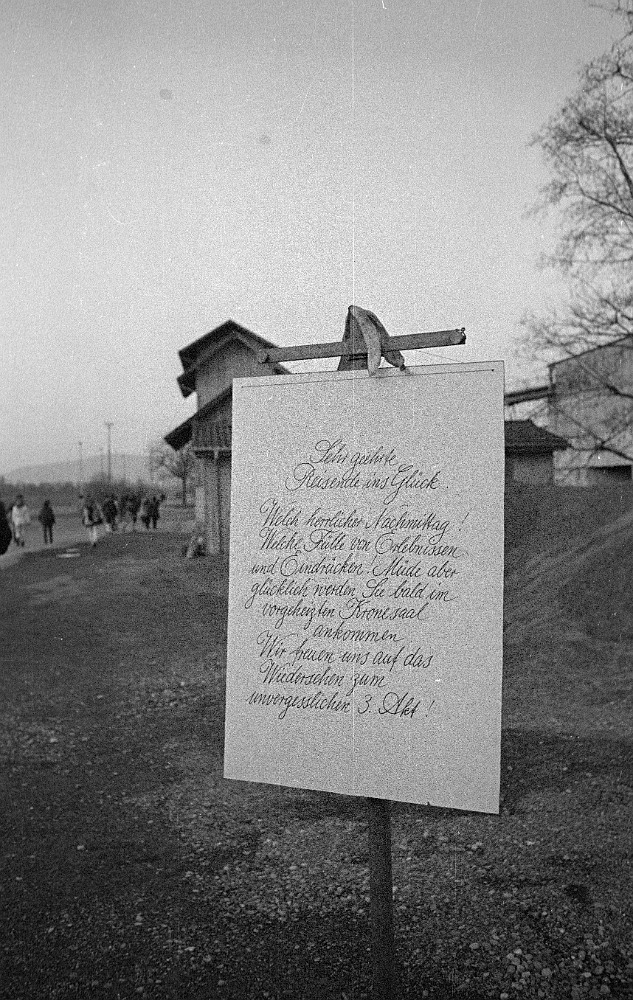 Sehr geehrte
Reisende ins Glück.
Welch herrlicher Nachmittag!
Welche Fülle von Erlebnissen
und Eindrücken. Müde aber
glücklich werden Sie bald im
vorgeheizten Kronesaal
ankommen
Wir freuen uns auf das
Wiedersehen zum
unvergesslichen 3. Akt!